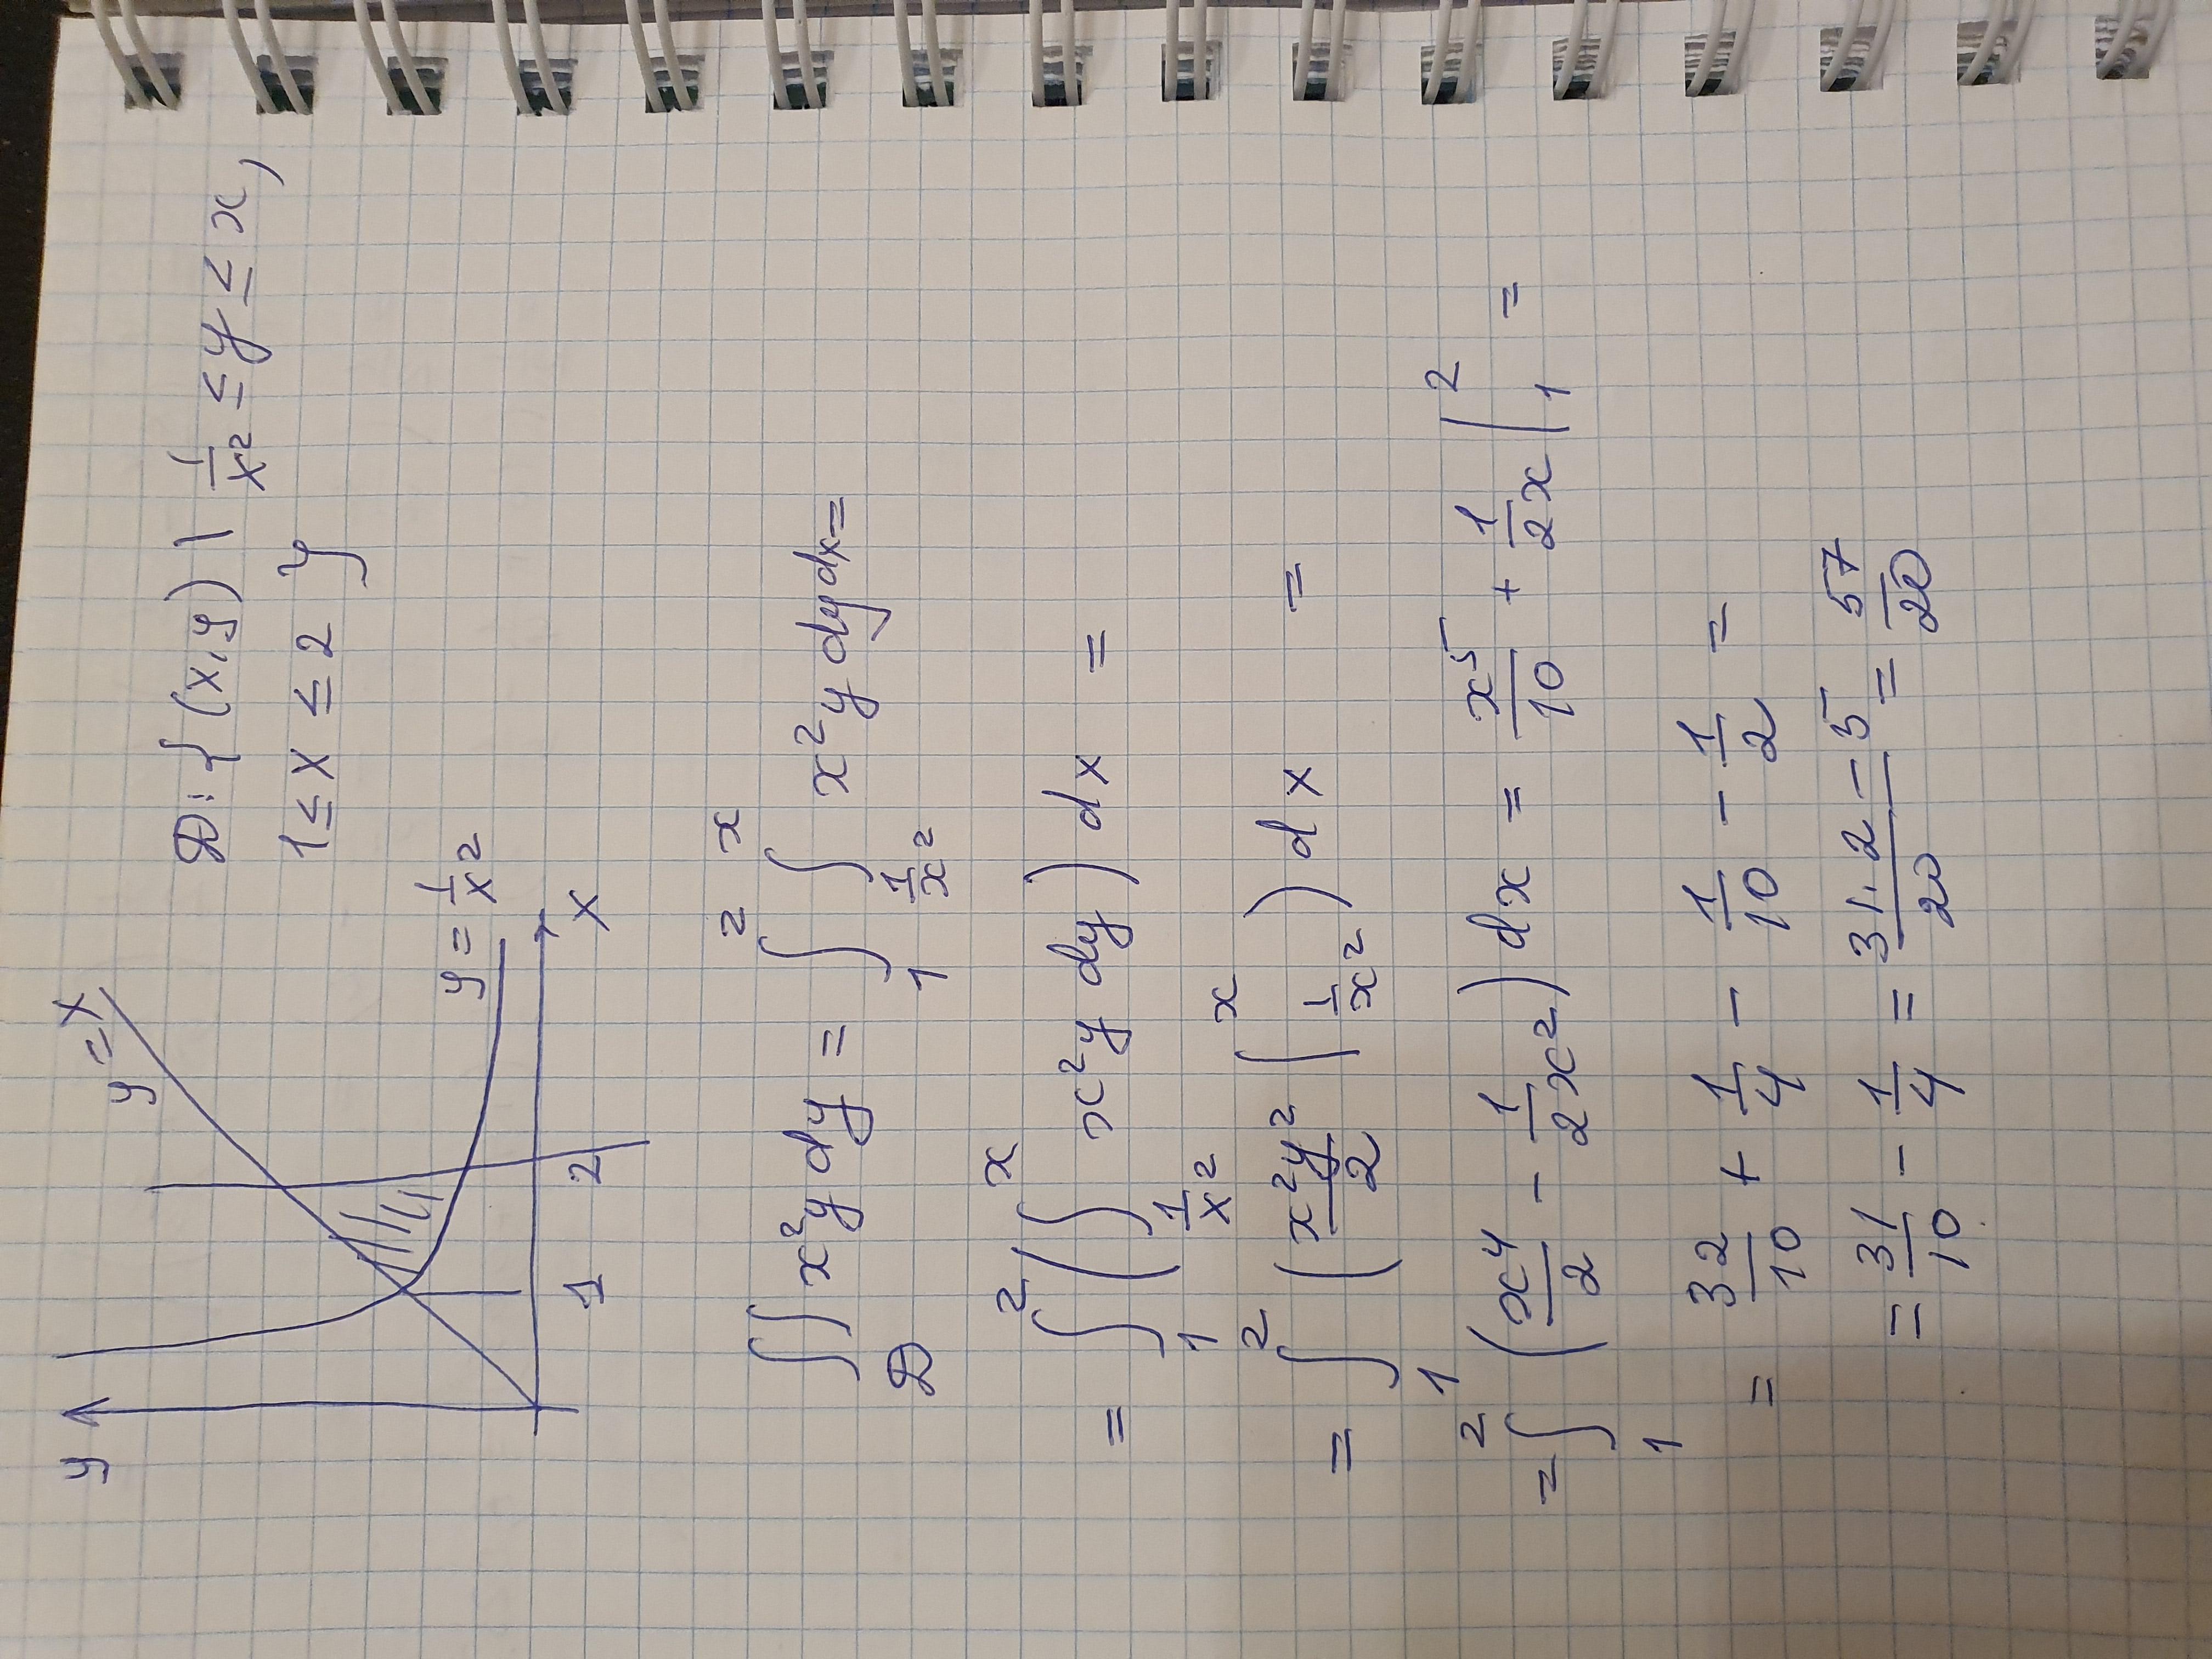 y
y = x
y = 1/x²
1 2 x
D: { (x, y) | 1/x² ≤ y ≤ x,
1 ≤ x ≤ 2 }
∬_D x²y dy = ∫_1^2 ∫_{1/x²}^x x²y dy dx =
= ∫_1^2 ( ∫_{1/x²}^x x²y dy ) dx =
= ∫_1^2 ( x²y²/2 |_{1/x²}^x ) dx =
= ∫_1^2 ( x⁴/2 - 1/2x² ) dx = x⁵/10 + 1/2x |_1^2 =
= 32/10 + 1/4 - 1/10 - 1/2 =
= 31/10 - 1/4 = 31·2-5/20 = 57/20